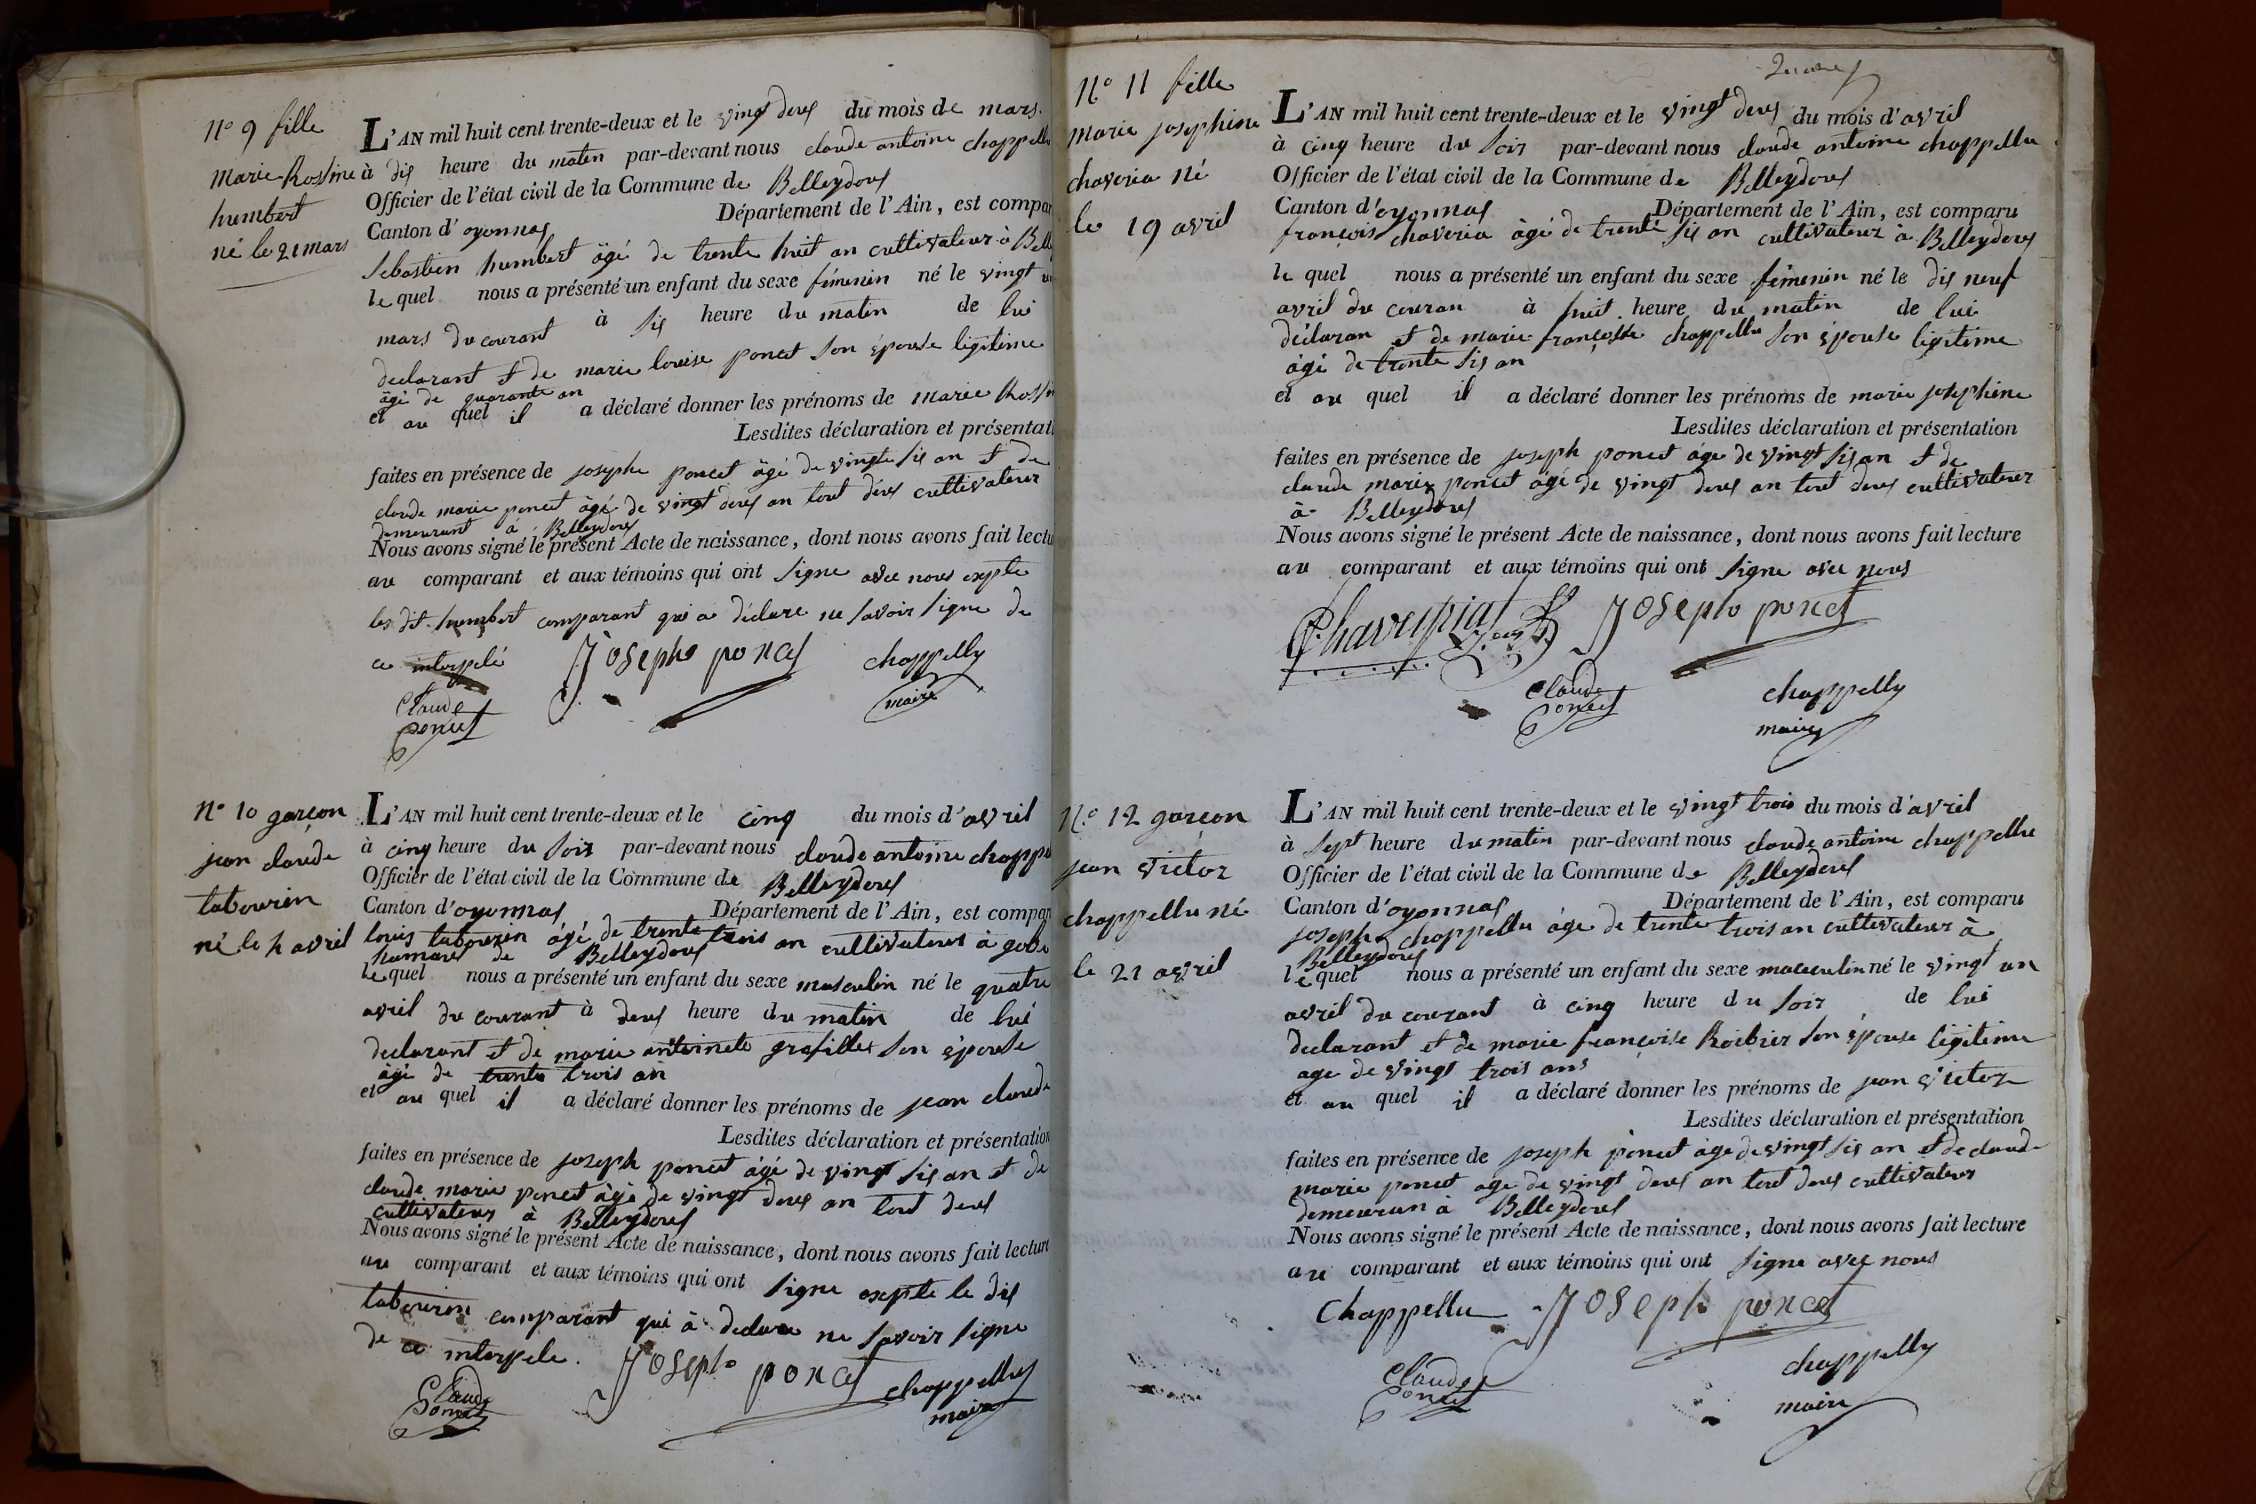 N° 9 fille
Marie Rosine
humbert
né le 21 mars
L'AN mil huit cent trente-deux et le vingt deux du mois de mars
à dix heure du maten par-devant nous claude antoine chappellu
Officier de l'état civil de la Commune de Belleydoux
Canton d'oyonnax Département de l'Ain, est compar
Sebastien humbert âgé de trente huit an cultivateur à Bell
le quel nous a présenté un enfant du sexe féminin né le vingt un
mars du courant à six heure du matin de lui
declarant et de marie louise poncet son épouse légitime
âgé de quarante an
et au quel il a déclaré donner les prénoms de marie Rosin
Lesdites déclaration et présentati
faites en présence de josephe poncet âgé de vingt six an et de
claude marie poncet âgé de vingt deux an tout deux cultivateur
demeurant à Belleydoux
Nous avons signé le présent Acte de naissance, dont nous avons fait lectu
au comparant et aux témoins qui ont signe avec nous exepte
les dit humbert comparant qui a déclare ne savoir signe de
ce interpelé
Josephe poncet chappelly
Claude maire
Poncet
N° 10 garçon
jean claude
tabourin
né le 4 avril
L'AN mil huit cent trente-deux et le cinq du mois d'avril
à cinq heure du soir par-devant nous claude antoine chappe
Officier de l'état civil de la Commune de Belleydoux
Canton d'oyonnax Département de l'Ain, est compar
louis tabourin âgé de trente trois an cultivateur à gobe
hamaux de Belleydoux
le quel nous a présenté un enfant du sexe masculin né le quatre
avril du courant à deux heure du matin de lui
declarant et de marie antoinete grafillex son épouse
âgé de trente trois an
et au quel il a déclaré donner les prénoms de jean claude
Lesdites déclaration et présentation
faites en présence de joseph poncet âgé de vingt six an et de
claude marie poncet âgé de vingt deux an tout deux
cultivateur à Belleydoux
Nous avons signé le présent Acte de naissance, dont nous avons fait lecture
au comparant et aux témoins qui ont signe exepte le dis
tabourin comparant qui à declare ne savoir signe
de ce interpele.
Joseph poncet chappelly
Claude maire
Poncet
N° 11 fille
marie josephine
chaveria né
le 19 avril
L'AN mil huit cent trente-deux et le vingt deux du mois d'avril
à cinq heure du soir par-devant nous claude antoine chappellu
Officier de l'état civil de la Commune de Belleydoux
Canton d'oyonnax Département de l'Ain, est comparu
françois chaveria âgé de trente six an cultivateur à Belleydoux
le quel nous a présenté un enfant du sexe féminin né le dix neuf
avril du couran à huit heure du matin de lui
déclaran et de marie françoise chappellu son épouse légitime
âgé de trente six an
et au quel il a déclaré donner les prénoms de marie josephine
Lesdites déclaration et présentation
faites en présence de joseph poncet âgé de vingt six an et de
claude marie poncet âgé de vingt deux an tout deux cultivateur
à Belleydoux
Nous avons signé le présent Acte de naissance, dont nous avons fait lecture
au comparant et aux témoins qui ont signe avec nous
Joseph poncet
Claude chappelly
Poncet maire
N° 12 garçon
jean victor
chappellu né
le 21 avril
L'AN mil huit cent trente-deux et le vingt trois du mois d'avril
à sept heure du matin par-devant nous claude antoine chappellu
Officier de l'état civil de la Commune de Belleydoux
Canton d'oyonnax Département de l'Ain, est comparu
joseph chappellu âge de trente trois an cultivateur à
Belleydoux
le quel nous a présenté un enfant du sexe masculin né le vingt un
avril du courant à cinq heure du soir de lui
declarant et de marie françoise Roibier son épouse légitime
age de vingt trois ans
et au quel il a déclaré donner les prénoms de jean victor
Lesdites déclaration et présentation
faites en présence de joseph poncet âge de vingt six an et de claude
marie poncet age de vingt deux an tout deux cultivateur
demeuran à Belleydoux
Nous avons signé le présent Acte de naissance, dont nous avons fait lecture
au comparant et aux témoins qui ont signe avec nous
Chappellu Joseph poncet
Claude chappelly
Poncet maire